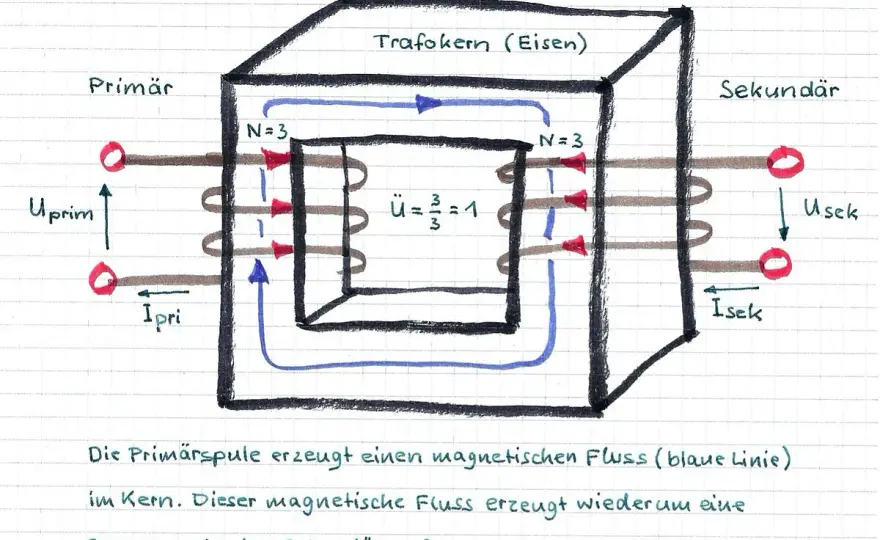 Trafokern (Eisen)
Primär
Sekundär
N=3
N=3
Uprim
Ü = 3/3 = 1
Usek
Ipri
Isek
Die Primärspule erzeugt einen magnetischen Fluss (blaue Linie)
im Kern. Dieser magnetische Fluss erzeugt wiederum eine